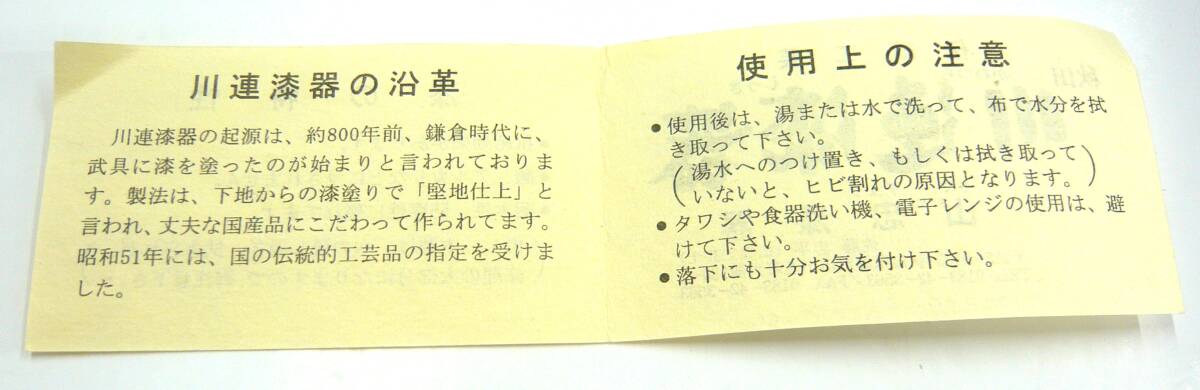 川連漆器の沿革
川連漆器の起源は、約800年前、鎌倉時代に、
武具に漆を塗ったのが始まりと言われておりま
す。製法は、下地からの漆塗りで「堅地仕上」と
言われ、丈夫な国産品にこだわって作られてます。
昭和51年には、国の伝統的工芸品の指定を受けま
した。
使用上の注意
●使用後は、湯または水で洗って、布で水分を拭
き取って下さい。
(湯水へのつけ置き、もしくは拭き取って
いないと、ヒビ割れの原因となります。)
●タワシや食器洗い機、電子レンジの使用は、避
けて下さい。
●落下にも十分お気を付け下さい。